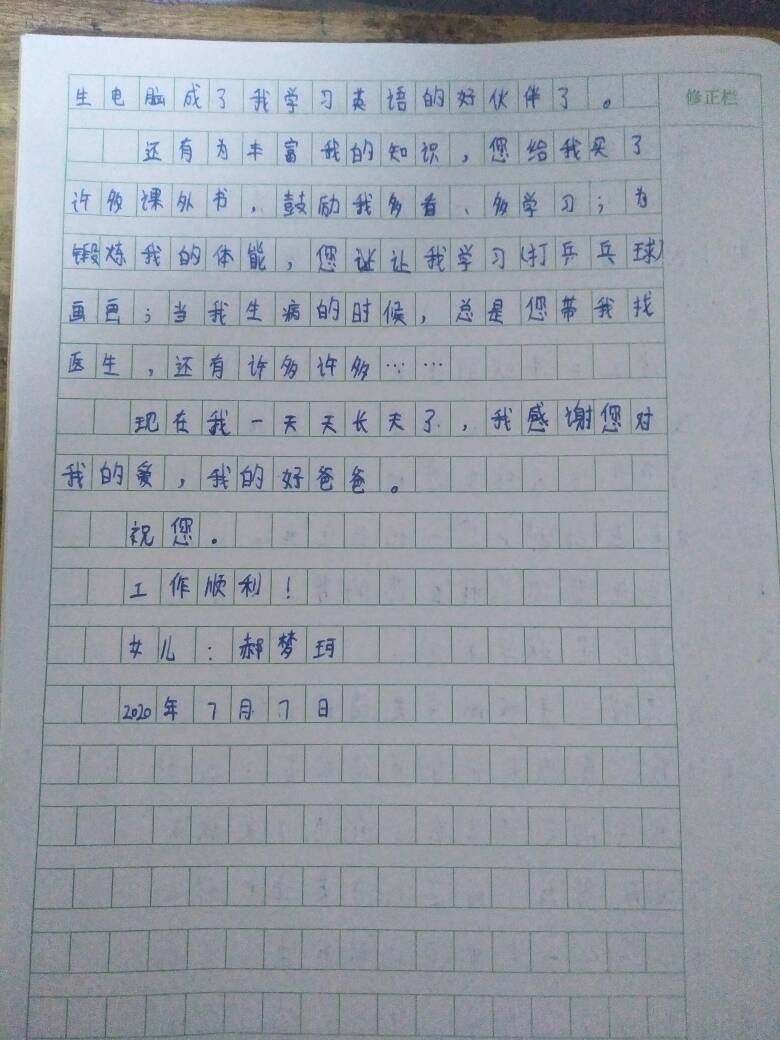 生电脑成了我学习英语的好伙伴了。
修正栏
还有为丰富我的知识，您给我买了
许多课外书，鼓励我多看、多学习；为
锻炼我的体能，您让我学习(打乒乓球)
画画；当我生病的时候，总是您带我找
医生，还有许多许多……
现在我一天天长大了，我感谢您对
我的爱，我的好爸爸。
祝您。
工作顺利！
女儿：郝梦珂
2020年7月7日